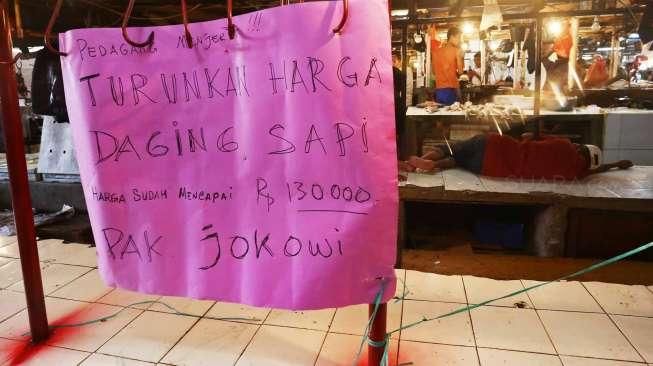 PEDAGANG MENJERIT !!!
TURUNKAN HARGA
DAGING SAPI
HARGA SUDAH MENCAPAI Rp 130000
PAK JOKOWI